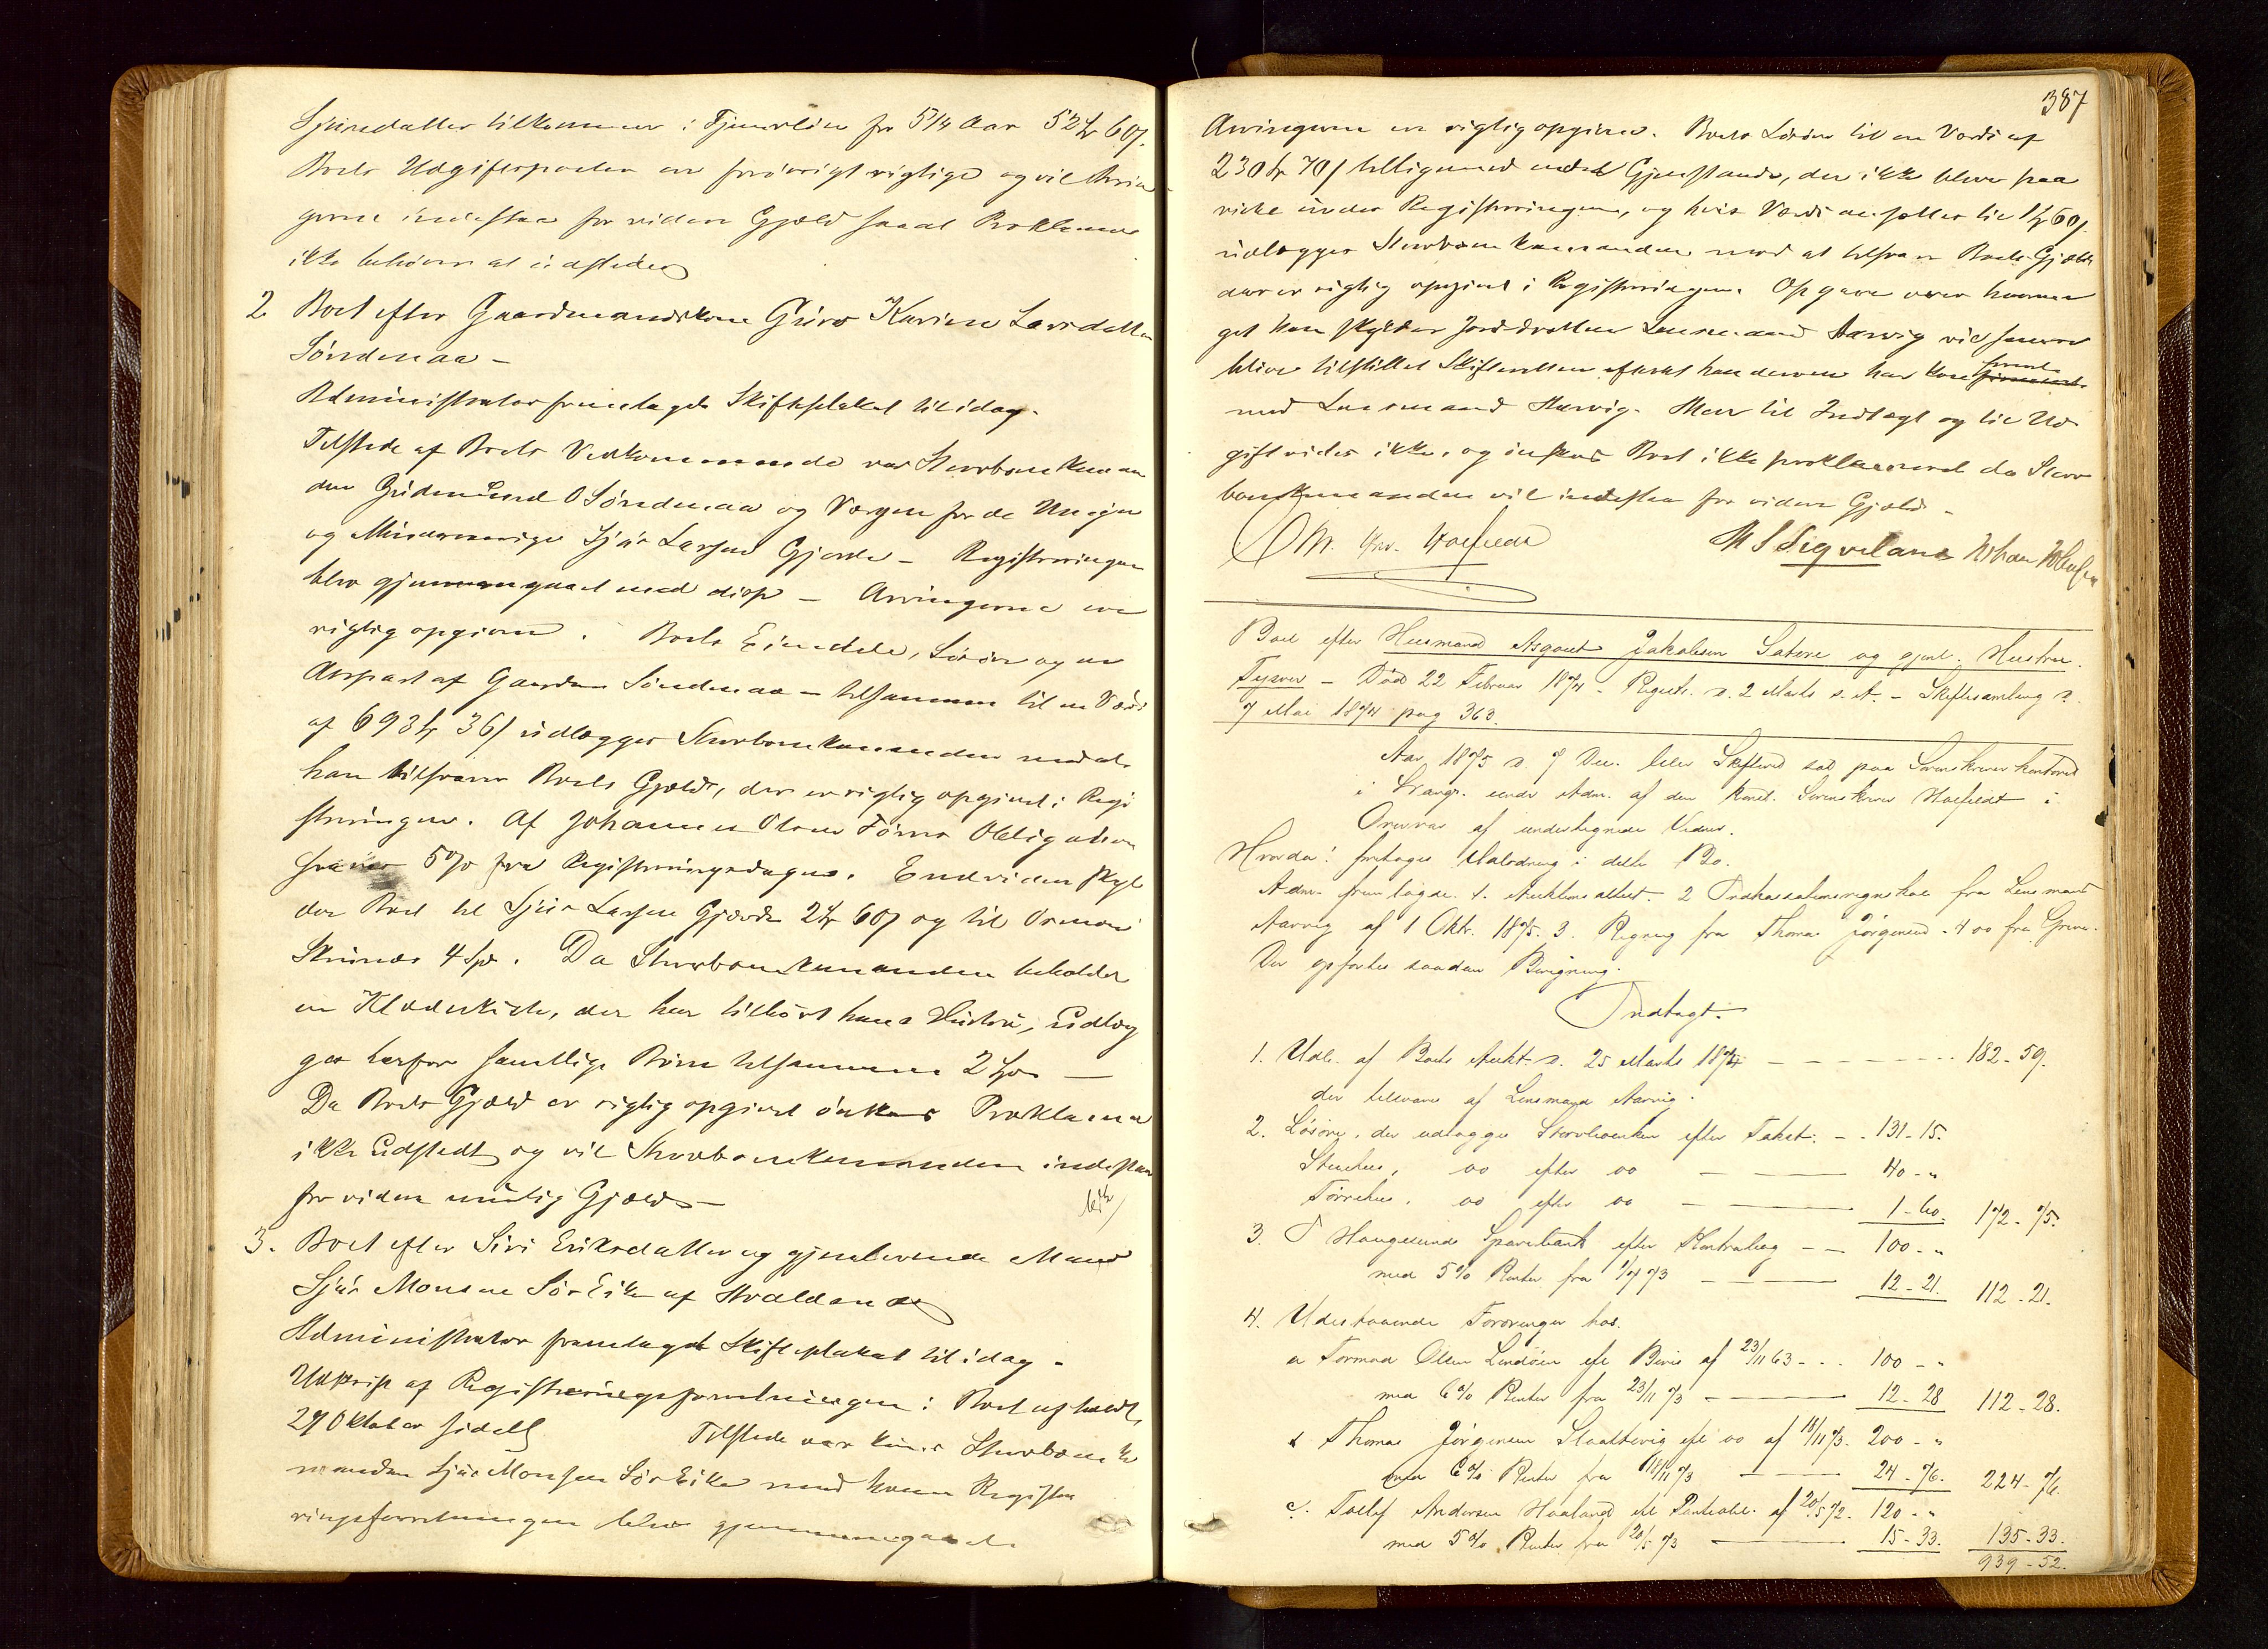 Sjursdatter tilkommer i Tjenerløn for 5 1/4 Aar 52 Kr 60 s.
Boets Udgiftsposter er forøvrigt rigtige og vil Arvin
gerne indestaa for videre Gjæld saaat Proklama
ikke behøver at udstedes
2. Boet efter Gaardmandskone Guro Karine Larsdatter
Søndenaa –
Administrator fremlagde Skifteplakat til idag.
Tilstede af Boets Vedkommende var Stervboenkeman
den Gudmund O Søndenaa og Værgen for de Umyn
og Mindreaarige Sjur Larsen Gjerde – Registreringen
blev gjennemgaaet med disse – Arvingerne ere
rigtig opgivne. Boets Eiendele, Løsøre og en
Aarpart af Gaarden Søndenaa – tilsammen til en Værdi
af 693 Kr 36 s udlægges Stervboenkemanden mod at
han tilsvarer Boets Gjæld, der er rigtig opgivet i Regi
streringen. Af Johannes Olsens Obligation
svares 5% fra Registreringsdagen. Endvidere skyl
der Boet til Sjur Larsen Gjerde 2 Kr 60 s og til
4 Spd. Da Stervboenkemanden beholder
en Klædeskiste, der har tilhørt hans Hustru, udlæg
ges herfor samtlige Børn tilsammen 2 Spd –
Da Boets Gjæld er rigtig opgivet ønskes Proklama
ikke Udstedt og vil Stervboenkemanden indestaa
for videre mulig Gjæld –
3. Boet efter Siri Eriksdatter og gjenlevende Mand
Sjur Monsen Sør Eike af
Administrator fremlagde Skifteplakat til idag –
Udskrift af Registreringsforretningen i Boet afholdt
27 Oktober sidstl Tilstede var kun Stervboenke
manden Sjur Monsen Sør Eike med hvem Registre
ringsforretningen blev gjennemgaaet.
387
Arvingerne er rigtig opgivne. Boets Løsøre til en Værdi af
230 Kr 70 s tilligemed endel Gjenstande, der ikke bleve paa
viste under Registreringen, og hvis Værdi ansættes til 1 Kr 60 s
udlægges Stervboenkemanden mod at tilsvare Boets Gjæld
der er rigtig opgivet i Registreringen. Opgave over hvormeget
han skylder Jorddrotten Lensmand Aarvig vil senere
blive tilstillet Skifteretten efterat han derom har konfereret
med Lensmand Aarvig. Mere til Indtægt og til Ud
gift vides ikke, og ønskes Boet ikke proklameret da Sterv
boenkemanden vil indestaa for videre Gjæld –
M S Sigveland Johan
Boet efter Husmand Asgaut Jakobsen Satere og gjenl. Hustru.
Tysvær – Død 22 Februar 1874 – Registr. d. 2 Marts s. A. – Skiftesamling d.
7 Mai 1874 pag 363.
Aar 1875 d. 7 Dec. blev Skifteret sat paa Sorenskriverkontoret
i Stavgr. under Adm. af den konst. Sorenskriver Hoefeldt i
Overvær af undertegnede Vidner.
Hvorda: foretoges Udlodning i dette Bo.
Adm. fremlagde 1. Auktionsattest. 2 Indkassationsregnskab fra Lensmand
Aarvig af 1 Okt. 1875. 3. Regning fra Thomas Jørgensen. 4 do fra
Der opførtes saadan Beregning.
Indtægt.
1. Udb. af Boets Aukt. d. 25 Marts 1874 – – – 182 - 59.
der tilsvares af Lensmand Aarvig.
2. Løsøre, der udlægges Stervboenken efter Takst: – 131 - 15.
Stuehus, do efter do – 40 - "
Tørrehus, do efter do – 1 - 60. 172 - 75.
3. I Haugesunds Sparebank efter Kontrabog – – 100 - "
med 5% Renter fra 1/7 73 – 12 - 21. 112 - 21.
4. Udestaaende Fordringer hos.
a Tormod Olsen Lindøen eft Bevis af 23/11 63 – – 100 - "
med 6% Renter fra 23/11 73 – 12 - 28 112 - 28.
b Thomas Jørgensen Slaattevig eft do af 18/11 73. 200 - "
med 6% Renter fra 18/11 73 – 24 - 76. 224 - 76.
c. Tollef Andersen Haaland eft Panteobl. af 20/5 72. 120 - "
med 5% Renter fra 20/5 73 – 15 - 33. 135 - 33.
939 - 52.